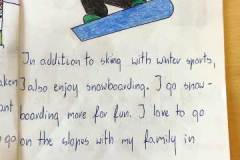 In addition to skiing with winter sports,
aken I also enjoy snowboarding. I go snow-
ant boarding more for fun. I love to go
go on the slopes with my family in